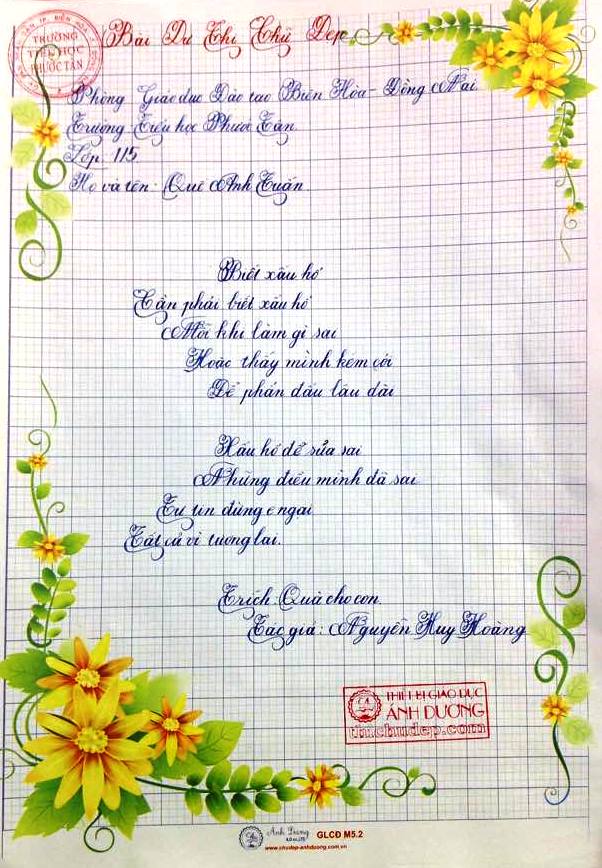 Bài Dự Thi Chữ Đẹp
TRƯỜNG
TIỂU HỌC
PHƯỚC TÂN
Phòng Giáo dục Đào tạo Biên Hòa - Đồng Nai
Trường Tiểu học Phước Tân
Lớp 1/5
Họ và tên: Quê Anh Tuấn
Biết xấu hổ
Cần phải biết xấu hổ
Mỗi khi làm gì sai
Hoặc thấy mình kém cỏi
Để phấn đấu lâu dài
Xấu hổ để sửa sai
Những điều mình đã sai
Tự tin đừng e ngại
Tất cả vì tương lai.
Trích: Quà cho con
Tác giả: Nguyễn Huy Hoàng
THIẾT BỊ GIÁO DỤC
ÁNH DƯƠNG
tinchudep.com
Ánh Dương
GLCĐ M5.2
www.chudep-anhduong.com.vn